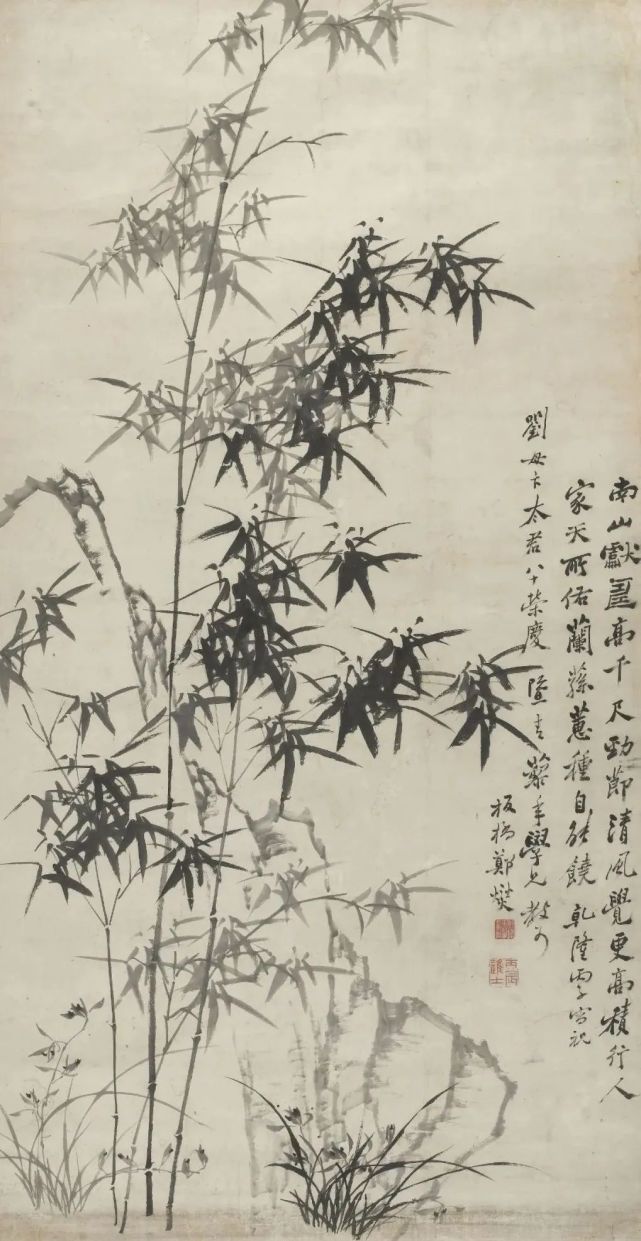 南山獻壽高千尺勁節清風覺更高積行人
家天所佑蘭蓀蕙種自能饒 乾隆丙子寫祝
劉母卞太君八十榮慶 暨青藜年學兄教可
板橋鄭燮
丙辰進士